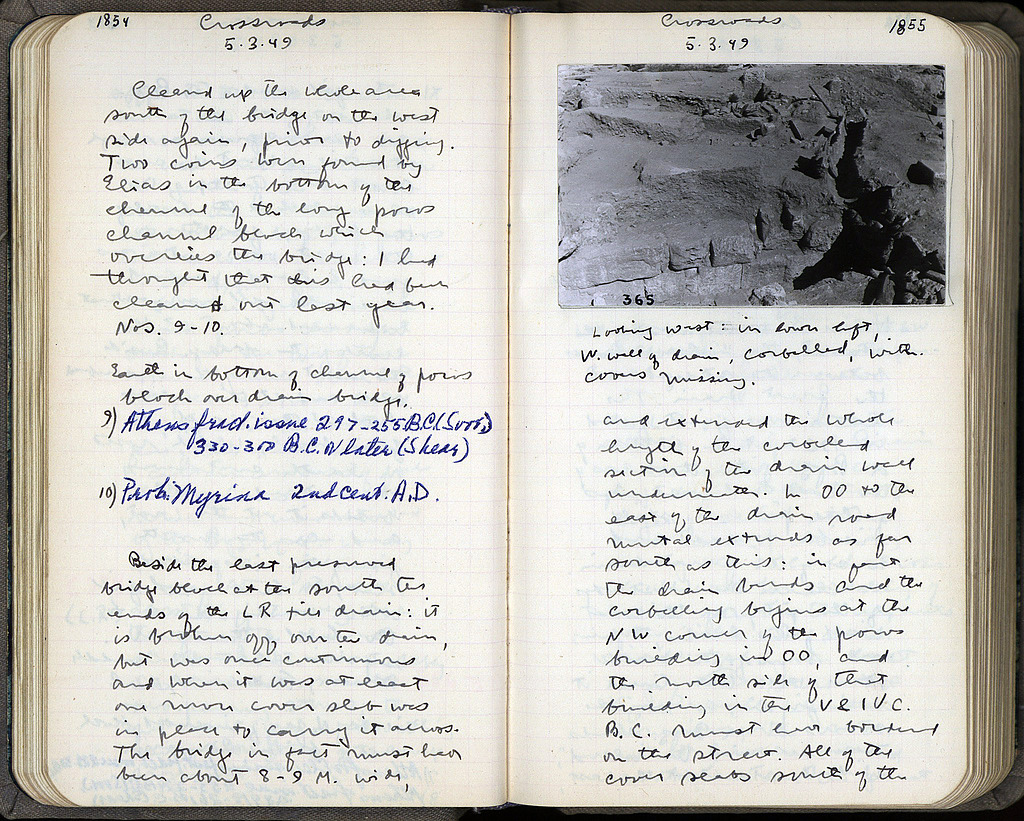 1854
Crossroads
5.3.49
Cleaned up the whole area
south of the bridge on the west
side again, prior to digging.
Two coins were found by
Elias in the bottom of the
channel of the long poros
channel block which
overlies the bridge: I had
thought that this had been
cleaned out last year.
Nos. 9-10.
Earth in bottom of channel of poros
block over drain bridge.
9) Athens frad. issue 297-255 B.C. (Svor.)
330-300 B.C. or later (Shear)
10) Prob. Myrina 2nd cent. A.D.
Beside the last preserved
bridge block at the south the
ends of the LR tile drain: it
is broken off over the drain,
but was once continuous
and when it was at least
one more cover slab was
in place to carry it across.
The bridge in fact must have
been about 8-9 M. wide,
1855
Crossroads
5.3.49
365
Looking west: in lower left,
W. wall of drain, corbelled, with
covers missing.
and extended the whole
length of the corbelled
section of the drain wall
underneath. In OO to the
east of the drain road
metal extends as far
south as this: in part
the drain bends and the
corbelling begins at the
NW corner of the poros
building in OO, and
the north side of that
building in the V & IV C.
B.C. must have bordered
on the street. All of the
cover slabs south of the